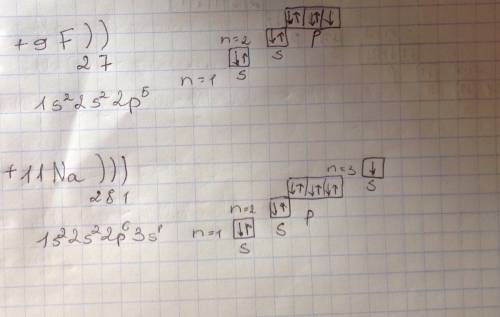 +9 F ) )
2 7
1s² 2s² 2p⁵
n=1
s
n=2
s
p
+11 Na ) ) )
2 8 1
1s² 2s² 2p⁶ 3s¹
n=1
s
n=2
s
p
n=3
s